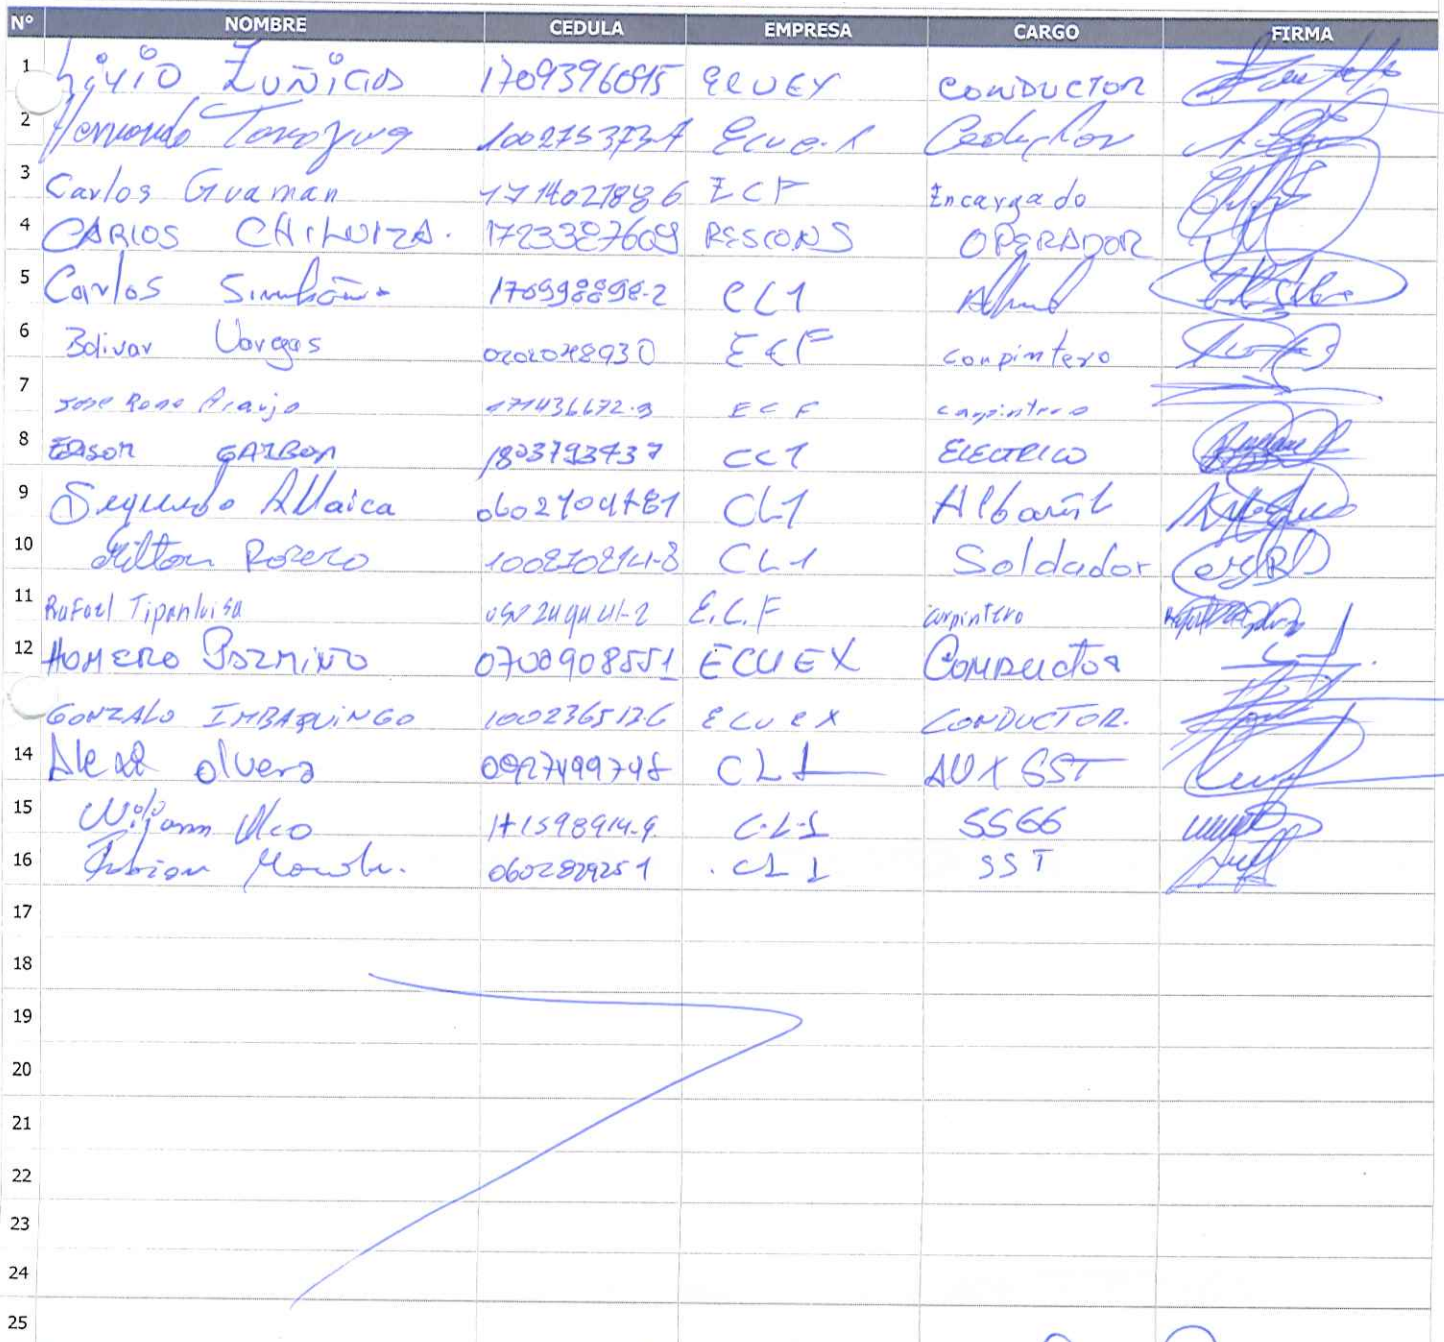 N° NOMBRE CEDULA EMPRESA CARGO FIRMA
1 Livio ZUÑIGA 1709396095 ECUEX CONDUCTOR
2 1002753737
3 Carlos Guaman 1714021886 ECF Encargado
4 CARLOS CHILUIZA. 1723327609 RESCONS OPERADOR
5 Carlos 170998898-2 CL1
6 Bolivar Vargas 0202048930 ECF carpintero
7 Jose Rene Araujo 171436672-3 ECF carpintero
8 EDISON GARZON 1803793737 CC1 ELECTRICO
9 Segundo Allaica 0602704781 CL1 Albañil
10 Milton Rosero CL1 Soldador
11 Rafael Tipanluisa E.C.F carpintero
12 HOMERO PAZMIÑO 0700908551 ECUEX CONDUCTOR
GONZALO IMBAQUINGO 1002365126 ECUEX CONDUCTOR.
14 olvera 0927499748 CL1 AUX SST
15 171598914-9 C.L.1 SSGG
16 Fabian 0602829251 .CL1 SST
17
18
19
20
21
22
23
24
25